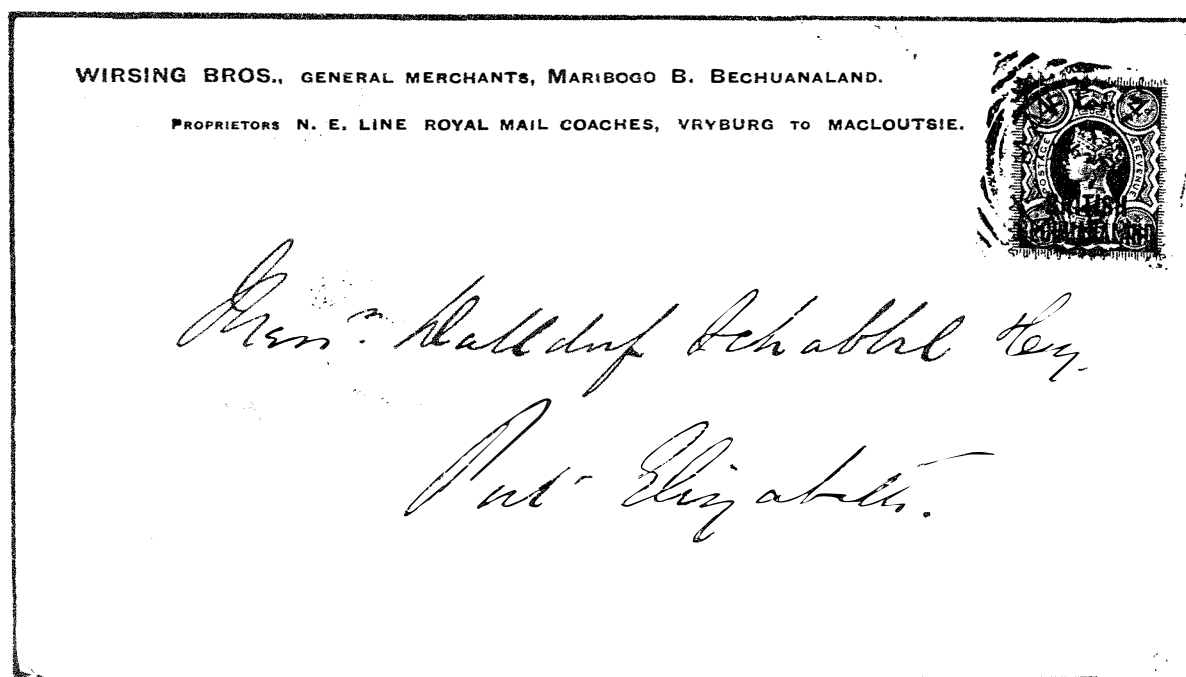 WIRSING BROS., GENERAL MERCHANTS, MARIBOGO B. BECHUANALAND.
PROPRIETORS N. E. LINE ROYAL MAIL COACHES, VRYBURG TO MACLOUTSIE.
POSTAGE & REVENUE
BRITISH
BECHUANALAND
Mess.rs Schabbel
Port Elizabeth.